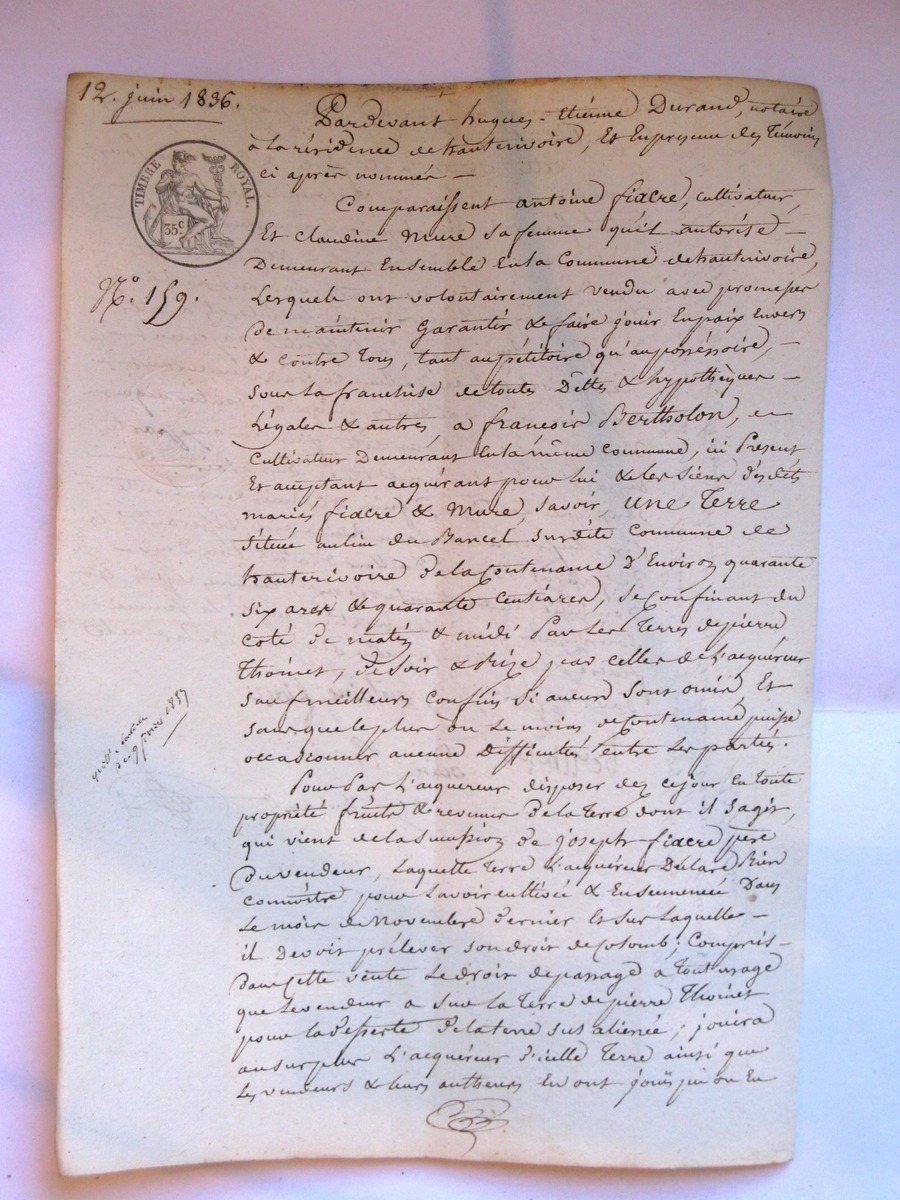 12. juin 1836.
TIMBRE ROYAL.
35c
No. 159.
Pardevant hugues-Etienne Durand, notaire
à la résidence de hauterivoire, Et En presence des Temoins
ci après nommés —
Comparaissent antoine fiacre, cultivateur,
Et claudine Mure sa femme qu'il autorise —
Demeurant Ensemble En la Commune de hauterivoire,
Lesquels ont volontairement vendu avec promesses
de maintenir garantir & faire jouir En paix Envers
& contre Tous, tant au pétitoire qu'au posséssoire, —
Sous la franchise de toutes Dettes & hypothèques —
Légales & autres, a françois Bertholon,
Cultivateur Demeurant En la même Commune, ici Présent
Et acceptant acquérant pour lui & les siens desdits
mariés fiacre & Mure, Savoir, une Terre
Située au lieu du Barcel Surdite Commune de
hauterivoire de la Contenance D'Environ quarante
six ares & quarante Centiares, se confinant du
coté de matin & midi Par les Terres de pierre
Thoinet, de soir & bize par celles de L'acquéreur
Sauf meilleurs confins Si aucuns sont omis, Et
sans que le plus ou Le moins de Contenance puisse
occasionner aucune Difficultés entre Les parties.
quitt.
du 9 février 1837
Pour Par L'acquereur disposer dez ce jour En toute
propriété fruits & revenus de la Terre dont il s'agit,
qui vient de la Succession de joseph fiacre père
Du vendeur, Laquelle Terre L'acquéreur Déclare Bien
connoître pour L'avoir cultivée & Ensemencée Dans
Le mois de Novembre dernier Et sur Laquelle —
il Devoit prélever son droit de Colomb; Compris —
Dans Cette vente Le droit de passage à tout usage
que Le vendeur a Sur La Terre de pierre Thoinet
pour la desserte de la terre sus alienée; jouira
au surplus L'acquéreur d'icelle Terre ainsi que
Les vendeurs & leurs autheurs En ont jouis pû ou En